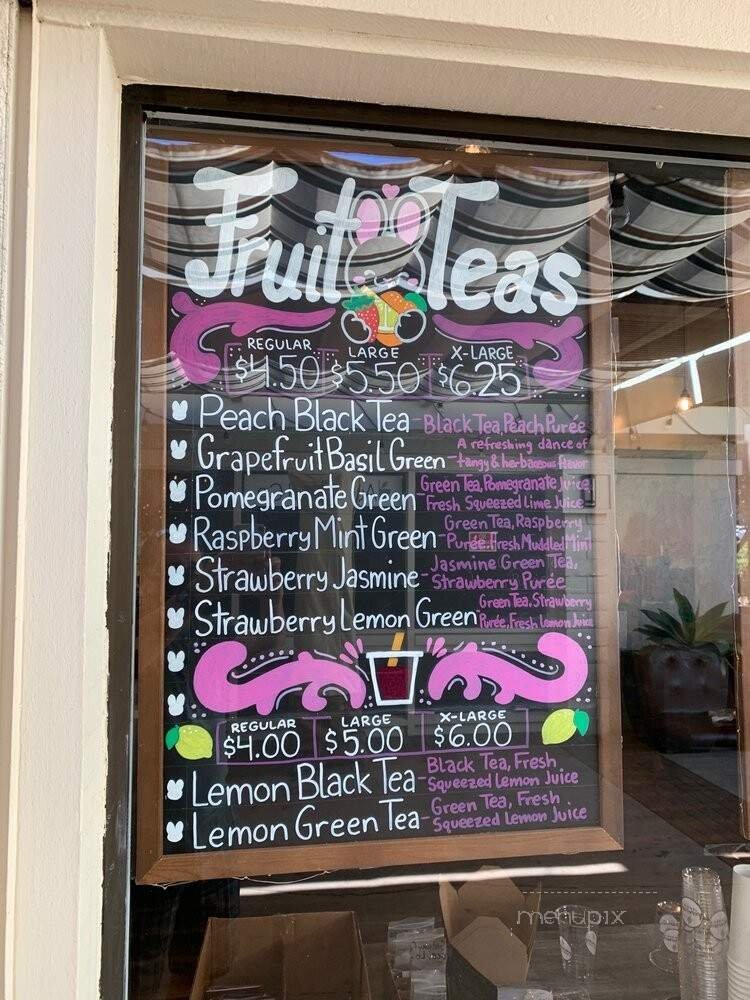 Fruit Teas
REGULAR LARGE X-LARGE
$4.50 $5.50 $6.25
Peach Black Tea - Black Tea, Peach Purée
Grapefruit Basil Green - A refreshing dance of
tangy & herbaceous flavor
Pomegranate Green - Green Tea, Pomegranate Juice,
Fresh Squeezed Lime Juice
Raspberry Mint Green - Green Tea, Raspberry
Purée, Fresh Muddled Mint
Strawberry Jasmine - Jasmine Green Tea,
Strawberry Purée
Strawberry Lemon Green - Green Tea, Strawberry
Purée, Fresh Lemon Juice
REGULAR LARGE X-LARGE
$4.00 $5.00 $6.00
Lemon Black Tea - Black Tea, Fresh
Squeezed Lemon Juice
Lemon Green Tea - Green Tea, Fresh
Squeezed Lemon Juice
menupix